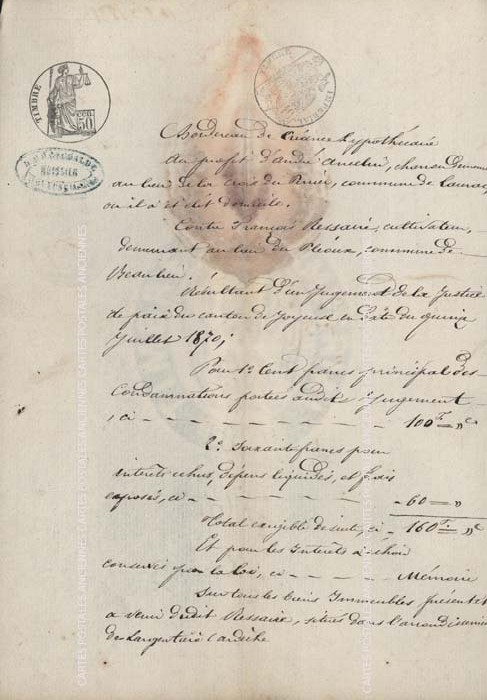 TIMBRE
50 CEN.
HUISSIER
Bordereau de Créance hypothécaire
Au profit d'andré Ancelin, demeurant
au lieu de la Croix du , commune de Laurac,
où il a dit domicile.
Contre François Ressaire, cultivateur,
demeurant au lieu du , commune de
Beaulieu.
Résultant d'un Jugement de la Justice
de paix du canton de Joyeuse en date du quinze
Juillet 1870;
Pour 1º Cent francs principal des
Condamnations portées audit Jugement
, ci - - - - - - - - 100 F. = " c
2º Soixante francs pour
intérêts échus, dépens liquidés, et frais
exposés, ci - - - - - - - 60 = "
Total exigible de suite, ci - 160 F. = " c
Et pour les Intérêts à échoir
conservés par la loi, ci - - - - Mémoire
Sur tous les biens Immeubles présents et
à venir dudit Ressaire, situés dans l'arrondissement
de Largentière (ardèche
CARTES POSTALES ANCIENNES